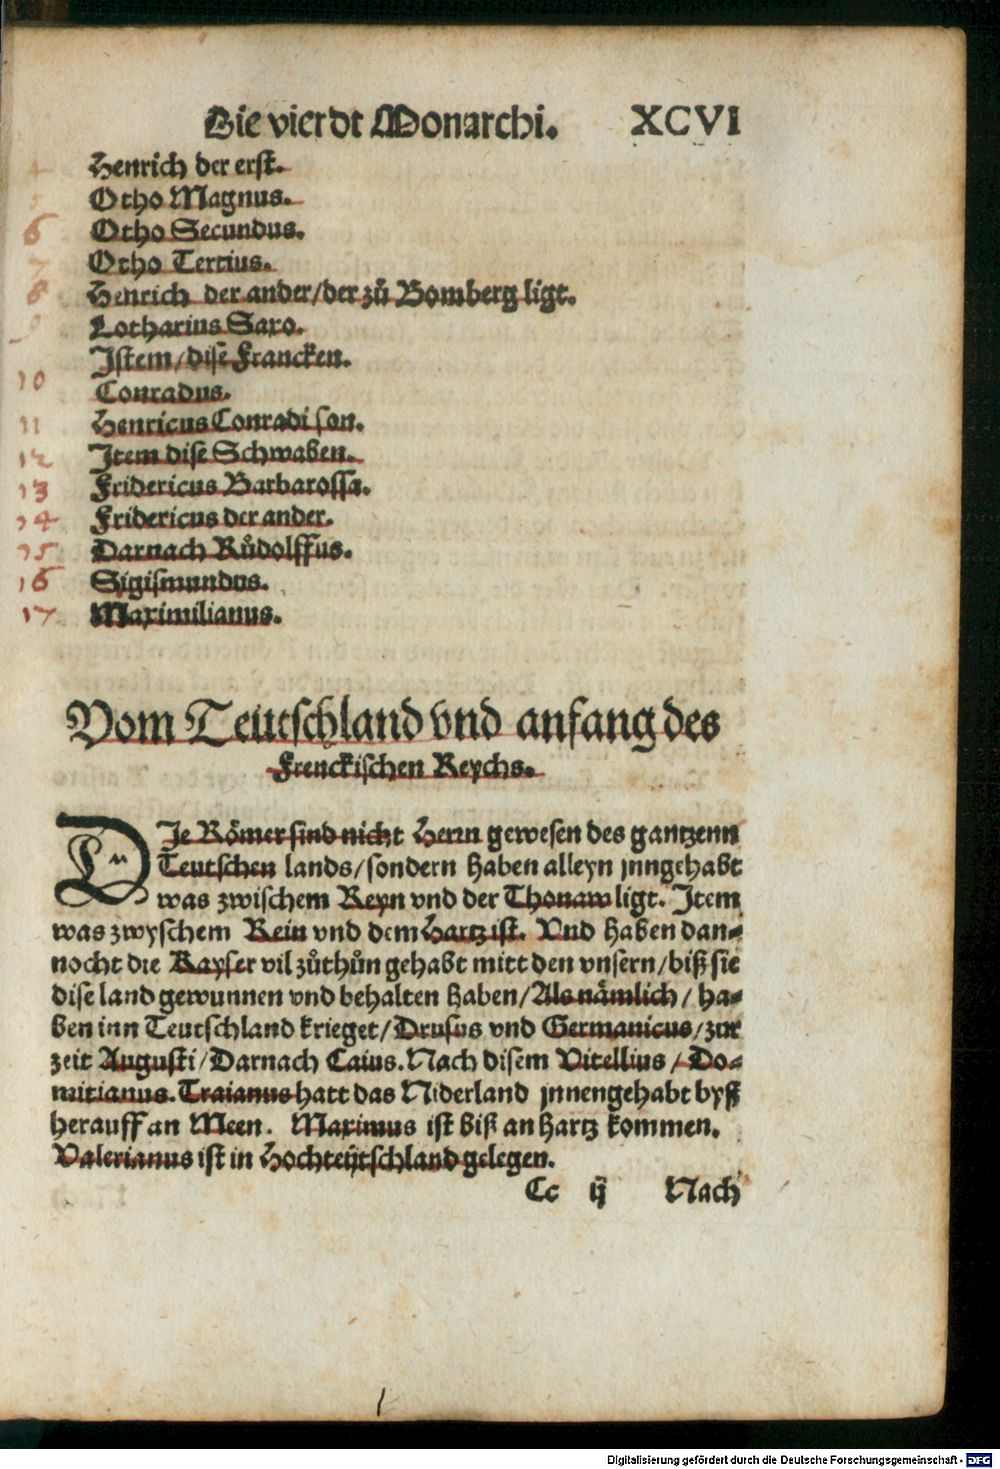 Die vierdt Monarchi. XCVI
Henrich der erst.
Otho Magnus.
6 Otho Secundus.
7 Otho Tertius.
8 Henrich der ander/der zů Bomberg ligt.
9 Lotharius Saxo.
Jstem/dise Francken.
10 Conradus.
11 Henricus Conradi son.
12 Jtem dise Schwaben.
13 Fridericus Barbarossa.
14 Fridericus der ander.
15 Darnach Růdolffus.
16 Sigismundus.
17 Maximilianus.
Vom Teutschland vnd anfang des
Frenckischen Reychs.
DJe Römer sind nicht Herrn gewesen des gantzenn
Teutschen lands/sondern haben alleyn jnngehabt
was zwischem Reyn vnd der Thonaw ligt. Jtem
was zwyschem Rein vnd dem Hartz ist. Vnd haben dan-
nocht die Kayser vil zůthůn gehabt mitt den vnsern/biß sie
dise land gewunnen vnd behalten haben/Als nämlich/ha-
ben inn Teutschland krieget/Drusus vnd Germanicus/zur
zeit Augusti/Darnach Caius. Nach disem Vitellius/Do-
mitianus. Traianus hatt das Niderland jnnengehabt byß
herauff an Meen. Maximus ist biß an Hartz kommen.
Valerianus ist in Hochteütschland gelegen.
Cc ij Nach
Digitalisierung gefördert durch die Deutsche Forschungsgemeinschaft - DFG